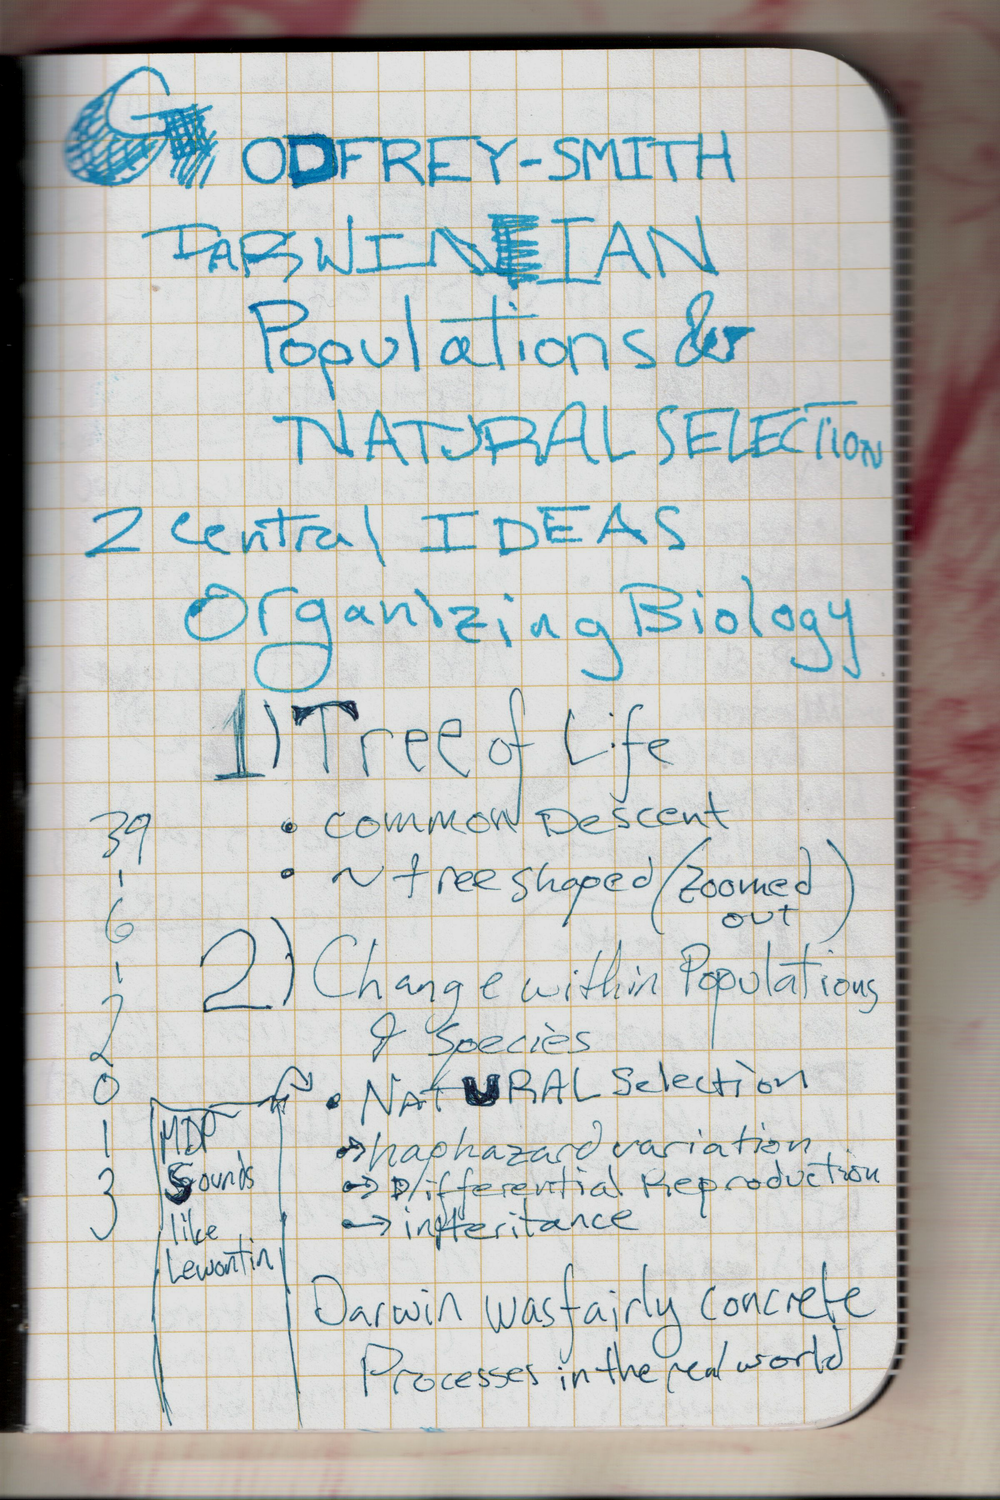 GODFREY-SMITH
DARWINIAN
Populations &
NATURAL SELECTION
2 central IDEAS
Organizing Biology
1) Tree of Life
• common Descent
• ~ tree shaped (zoomed
out)
2) Change within Populations
& Species
• NATURAL Selection
→ haphazard variation
→ Differential Reproduction
→ inheritance
Darwin was fairly concrete
Processes in the real world
39
-
6
-
2
2
0
1
3
3
MDP
Sounds
like
Lewontin